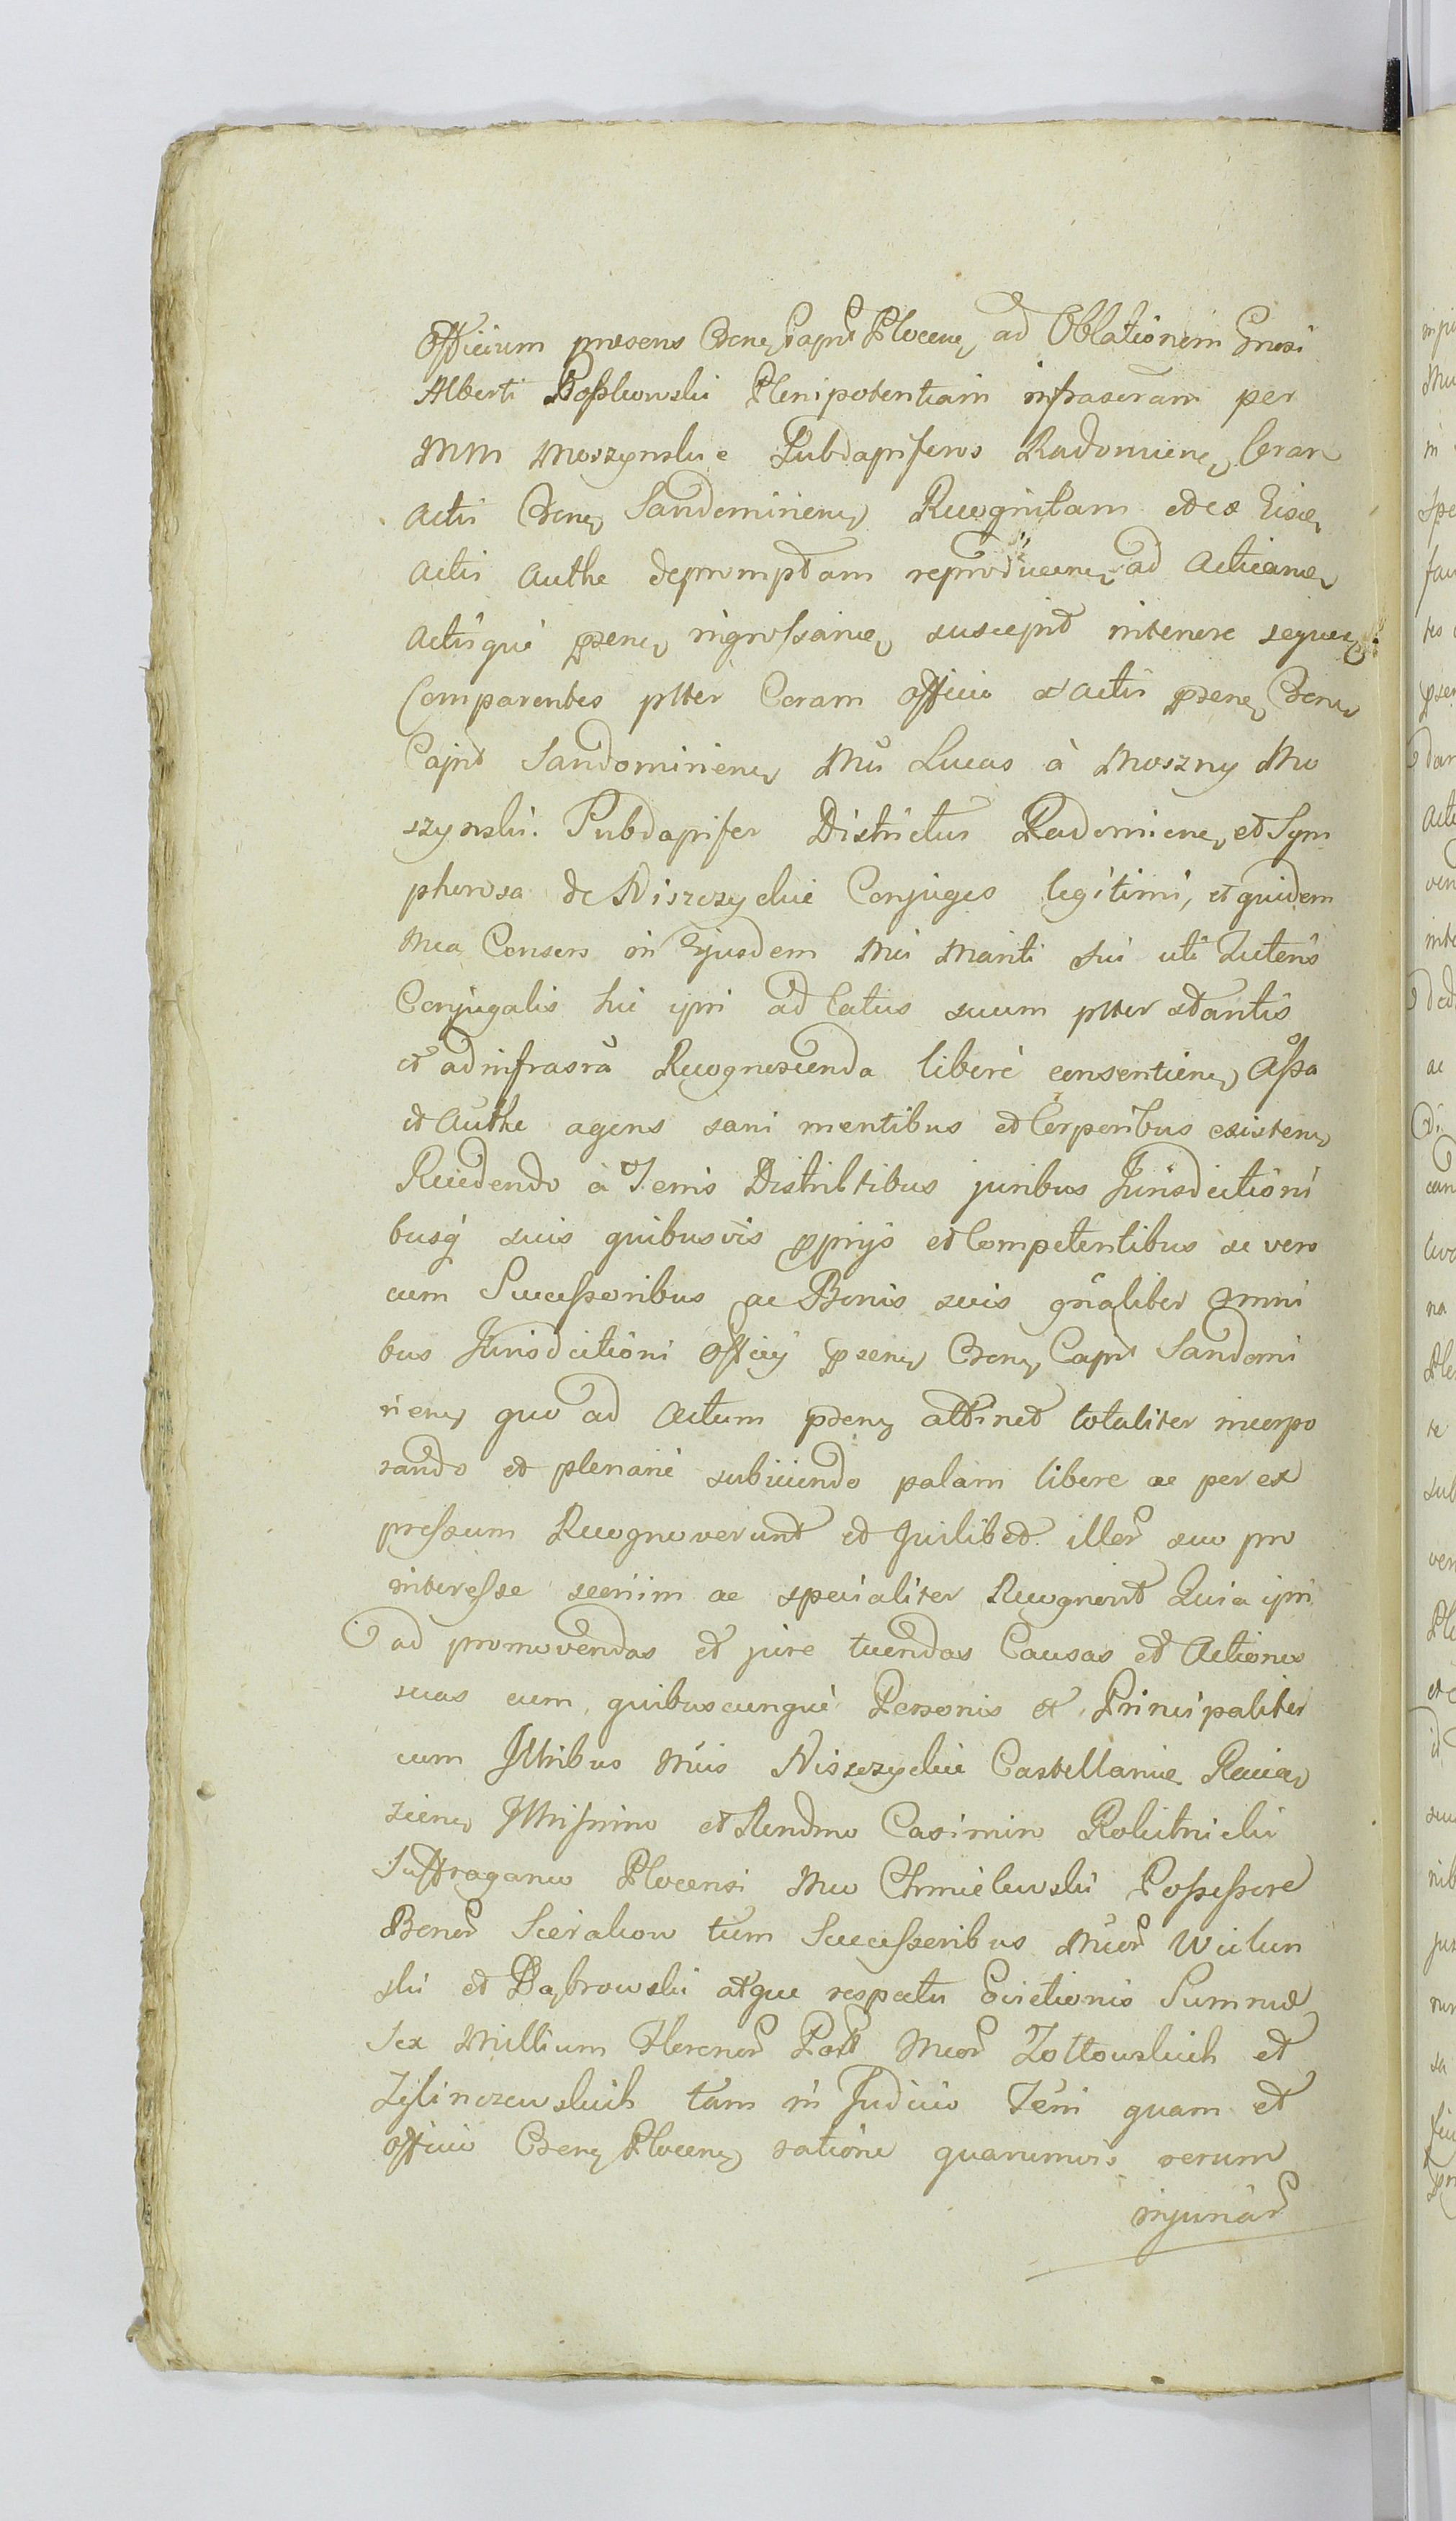 Officium presens Crene Capnt Plocene ad Oblationem Gnosi
Alberti Plenipotentiam infrascram per
MM Moszynskie Subdapiferos Radomiene Coram
Actis Crene Sandomiriene Recognitam et ex Eisde
Actis Authe depromptam reproducene ad Acticane
Actisque psene ingrossane suscepit in tenore seque
Comparentes pltter Coram Officio et Actis psene Crene
Capnt Sandomiriene Mus Lucas à Moszny Mo
szynski Subdapifer Districtus Radomiene et Sym
pherosa de Niszczyckie Conjuges legitimi, et quidem
Mca Consors in Ejusdem Mci Mariti sui uti Tutoris
Conjugalis hic ipsi ad latus suum pltter stantis
et ad infrasrã Recognoscenda liberè consentiene Assa
et Authe agens sani mentibus et Corporibus existene
Recedendo à Terris Districtibus juribus Jurisdictioni
busq suis quibusvis pprijs et Competentibus se vero
cum Successoribus ac Bonis suis gñaliter omni
bus Jurisdictioni Officij psene Crene Capnt Sandomi
riene quo ad Actum psene attinet totaliter incorpo
rando et plenariè subiiciendo palam libere ac per ex
pressum Recognoverunt et quilibet illor suo pro
interesse seorsim ac specialiter Recognont Quia ipsi
ad promovendas et jure tuendas Causas et Actiones
suas cum quibuscunque Personis et Principaliter
cum Illribus Mcis Niszczyckie Castellanie Raciąz
siene Illrissimo et Rendmo Casimiro Rokitnicki
Suffraganeo Plocensi Mco Chmielewski Possessore
Bonor Scierakow tum Successoribus Mcor Wiclun
ski et Dąbrowski atque respectu Evictionis Summæ
Sex Millium Florenor Poll Mcor Zołtowskich et
tam in Judicio Terri quam et
Officio Crene Plocene ratione quarumvis rerum
injuriar